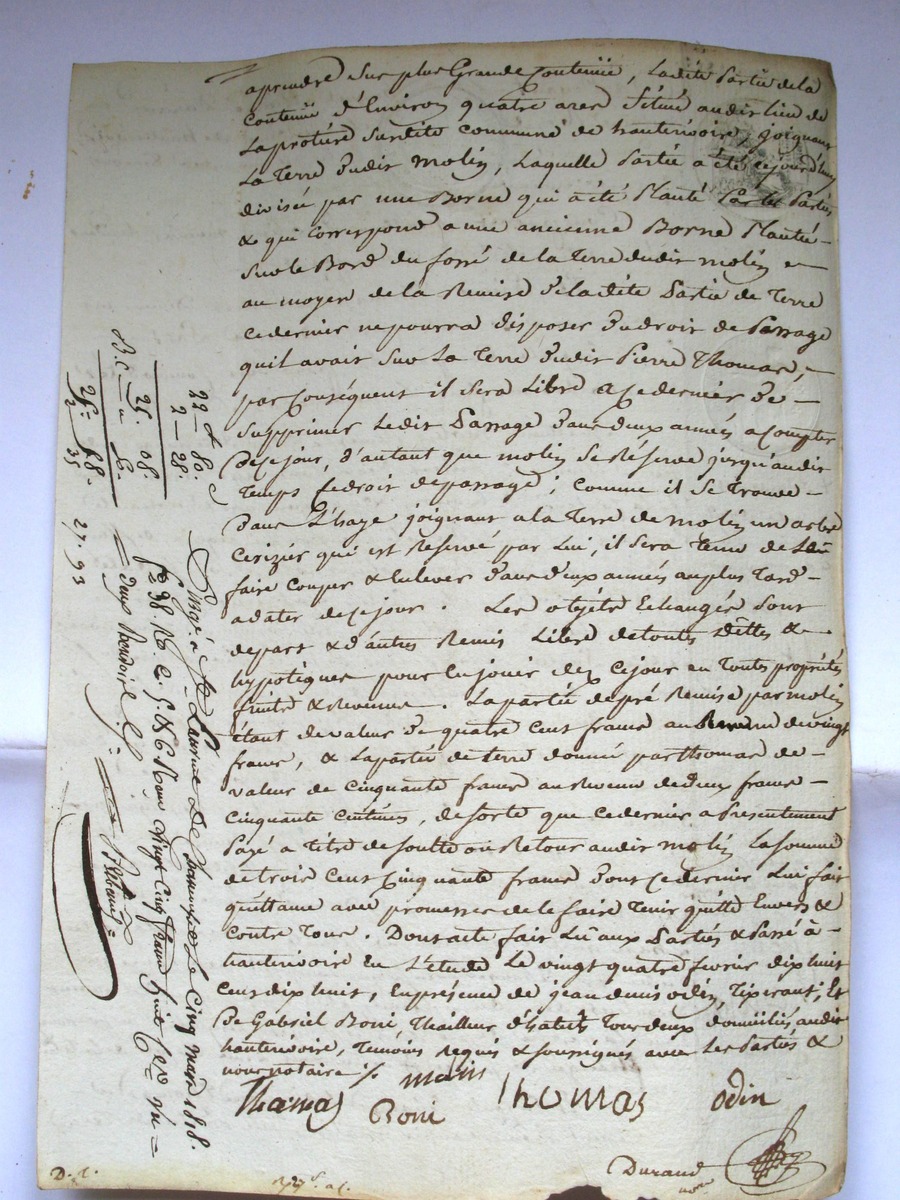 aprendre Sur plus Grande Contenüe, Ladite Partie de la
Contenüe d'Environ quatre ares Situé audit lieu de
Laproture Surdite commune de hauterivoire, joignant
La Terre dudit molin, Laquelle Partie a été cejourd'huy
divisée par une Borne qui a été Planté Par les Parties
& qui Correspond a une ancienne Borne Plantée
Sur le Bord du fossé de la Terre dudit molin
au moyen de la Remise de ladite Partie de Terre
ce dernier ne pourra disposer du droit de Passage
quil avait Sur La Terre dudit Pierre Thomas,
par Conséquent il Sera Libre a ce dernier de
Supprimer Ledit Passage dans deux années a Compter
de ce jour, d'autant que molin Se Réserve jusqu'audit
Temps ce droit de passage ; comme il Se Trouve
dans L'haye joignant a la Terre de molin un arbre
Cerizier qui est Reservé par Lui, il Sera Tenu de
faire Couper & Enlever dans deux années au plus Tard
a dater de ce jour. Les objets Echangés Sont
de part & d'autres Remis Libre de toutes dettes &
hypotèques pour en jouir dez ce jour en Toutes propriétés
fruits & Revenus. La partie de pré Remise par molin
étant de valeur de quatre Cent francs au Revenu de vingt
francs, & la partie de terre donné par thomas de
valeur de Cinquante francs au Revenu de deux francs
Cinquante Centimes, de sorte que ce dernier a Présentement
Payé a titre de soulte ou Retour audit molin La somme
de trois Cent Cinquante francs dont ce dernier Lui fait
quittance avec promesse de le faire Tenir quitte Envers &
Contre Tous. Dont acte fait Lu aux Parties & Passé à
hauterivoire En L'étude Le vingt quatre fevrier dix huit
Cent dix huit, En présence de jean denis odin, Tixerant, Et
De Gabriel Boni, Thailleur d'habits Tous deux domiciliés audit
hauterivoire, Témoins Requis & soussignés avec Les Parties &
nous notaire
Thomas molin Thomas odin
Boni
Durand
D. t.
22 80.
2 28.
25. 08.
27. 93
Le Cinq mars 1818.
f° 98. R° C. 5. & 6 Reçu Vingt Cinq francs huit